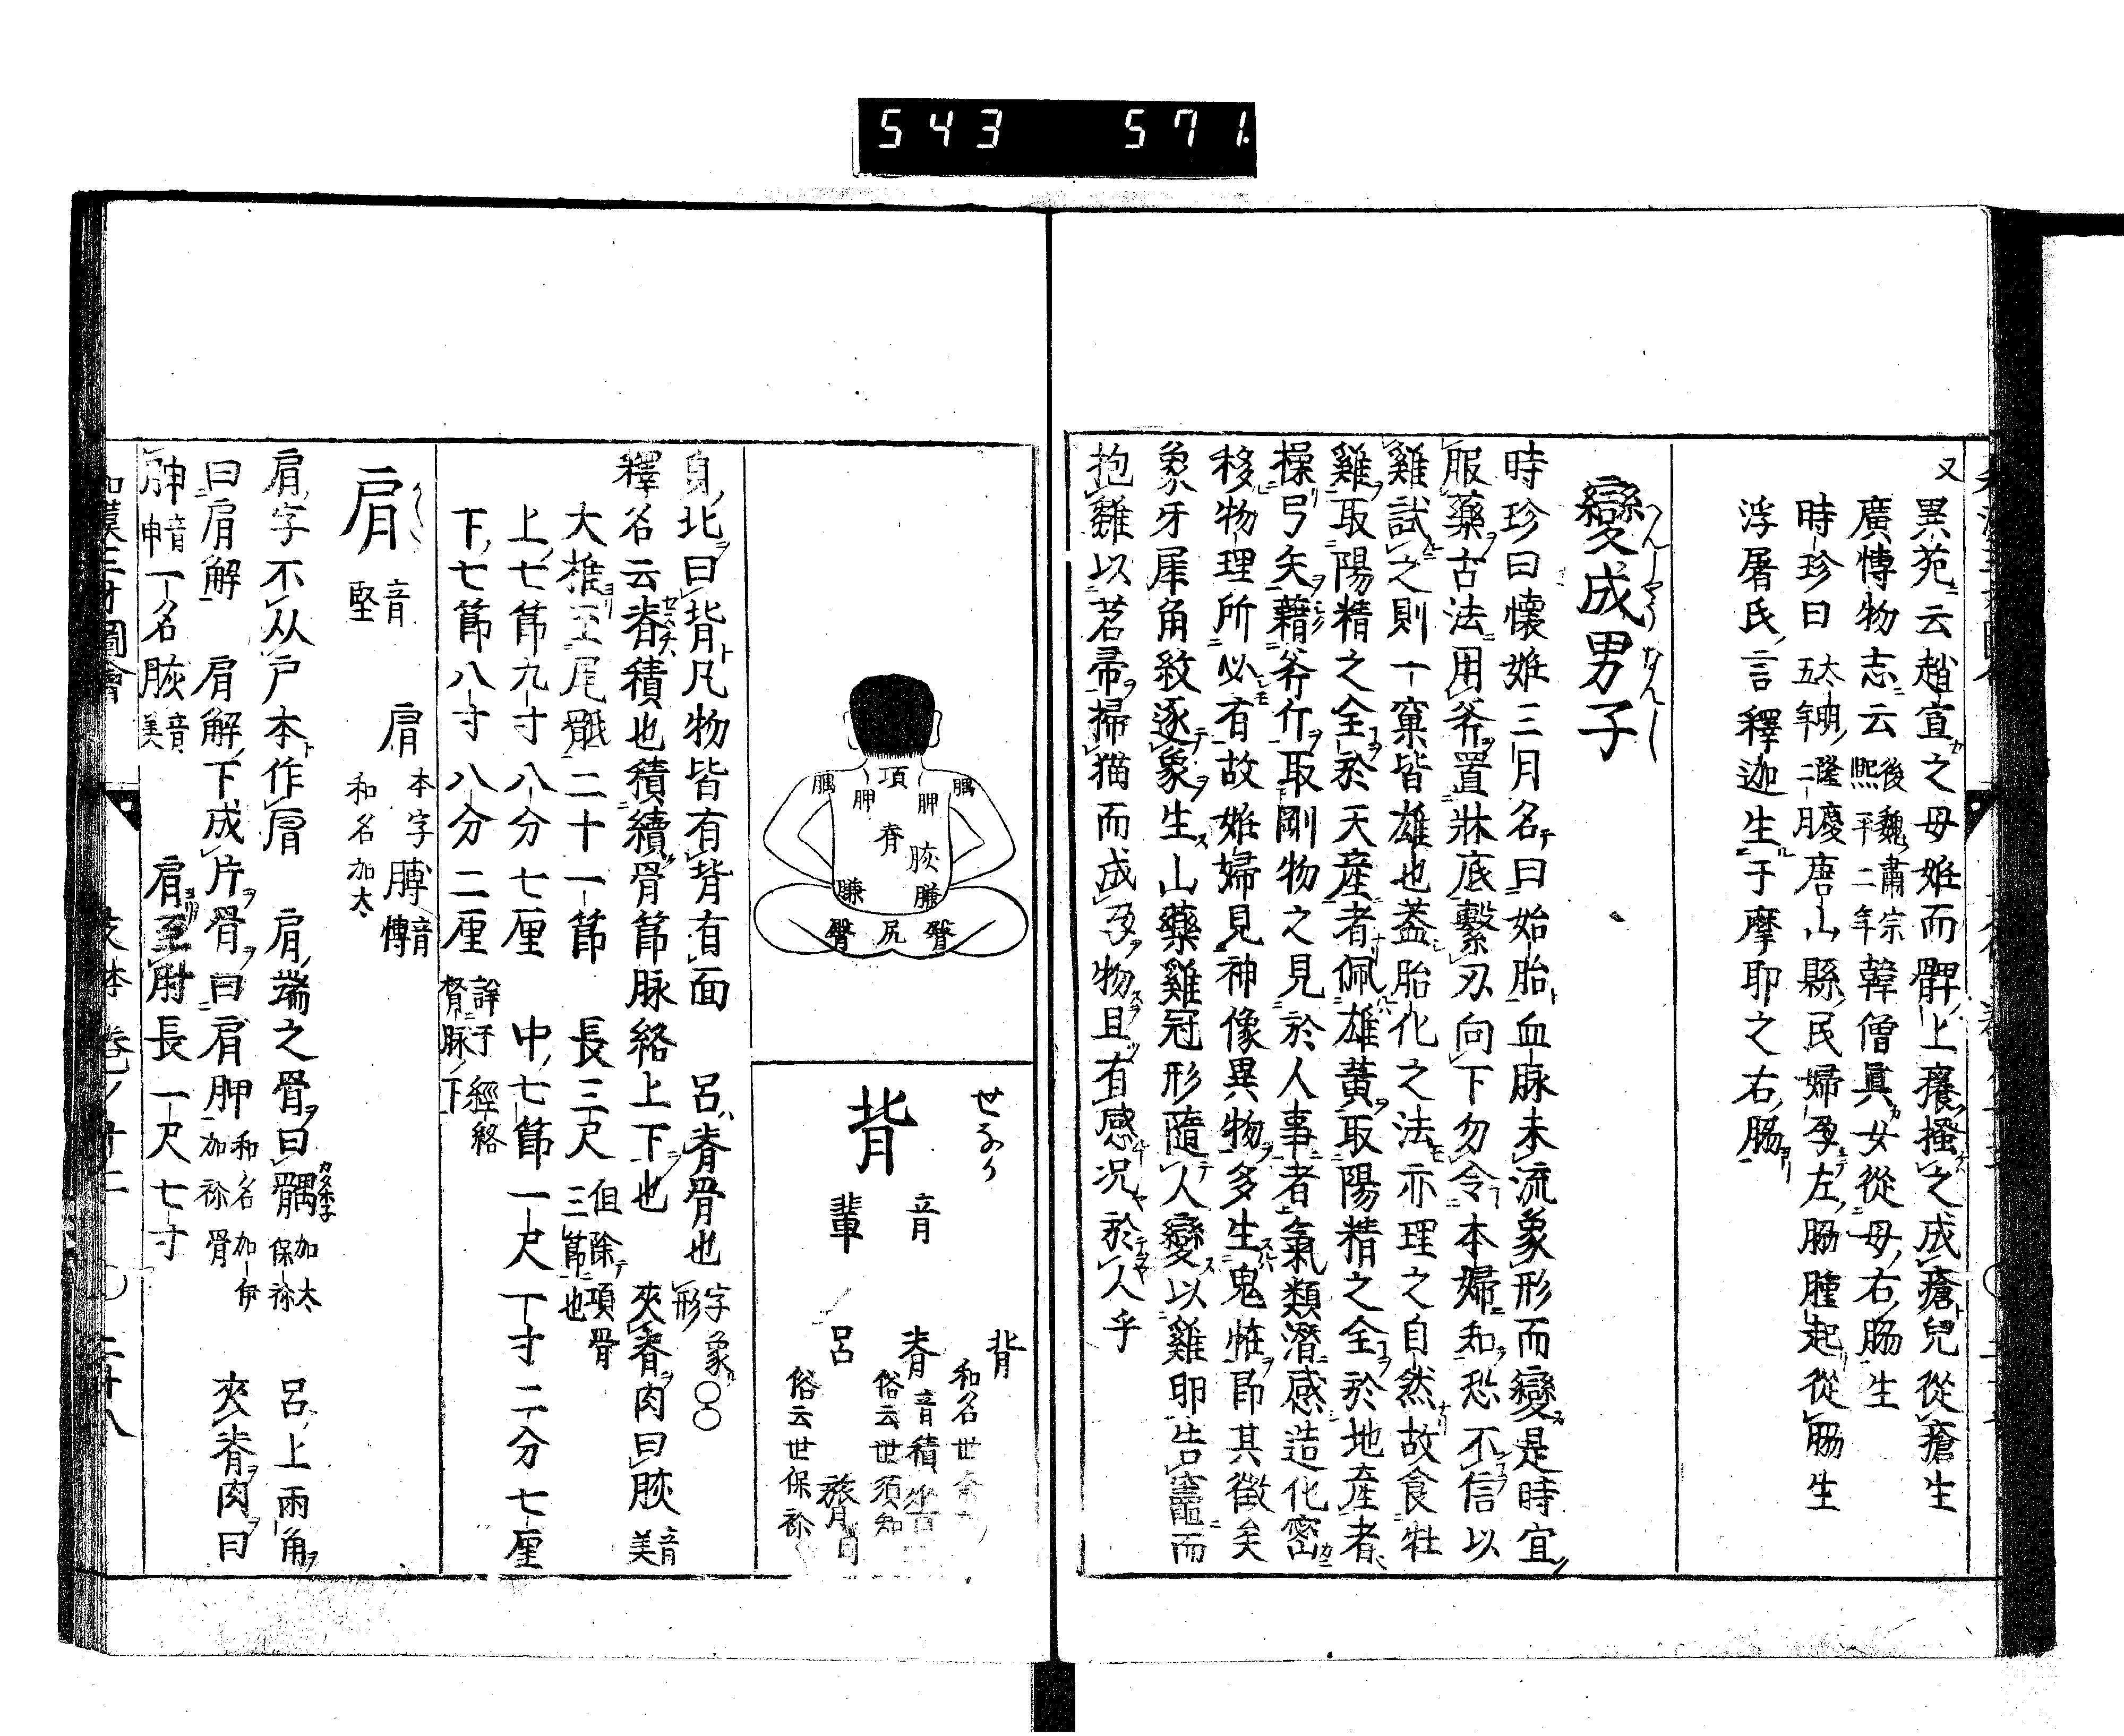 543 571.
又異苑云趙宣之母姙而髀上癢搔之成瘡兒從瘡生
廣愽物志云後魏肅宗熙平二年韓僧眞女從母右脇生
時珍曰太明隆慶五年二月唐山縣民婦孕左脇腫起從脇生
浮屠氏言釋迦生于摩耶之右脇
變成男子
へんじやうなんし
時珍曰懷姙三月名曰始胎血脉未流象形而變是時宜
服藥古法用斧置牀底繫刃向下勿令本婦知恐不信以
雞試之則一窠皆雄也葢胎化之法亦理之自然故食牡
雞取陽精之全於天產者佩雄黃取陽精之全於地產者
操弓矢藉斧斤取剛物之見於人事者氣類潛感造化密
移物理所必有故姙婦見神像異物多生鬼恠即其徵矣
象牙犀角紋逐象生山藥雞冠形隨人變以雞卵告竈而
抱雛以茗帚掃猫而成孕物且有感况於人乎
項
髃 胛 胛 髃
脊
胘
膁 膁
臀 尻 臀
せなか
背
音輩
背 和名世
脊 音積 俗云世須知
呂 膂同 俗云世保祢
身北曰背凡物皆有背有面 呂脊骨也 字象形
釋名云脊積也積續骨節脉絡上下也 夾脊肉曰胘 音美
大椎至尾骶二十一節 長三尺 但除項骨三節也
上七節九寸八分七厘 中七節一尺一寸二分七厘
下七節八寸八分二厘 詳于經絡督脉下
肩
音堅
肩 本字 膊 音愽
和名加太
肩字不从戶本作肩 肩端之骨曰髃 加太保祢 呂上兩角
曰肩解 肩解下成片骨曰肩胛 和名加伊加祢骨 夾脊肉曰
胂 音申 一名胘 音美 肩至肘長一尺七寸
和漢三才圖會 支体 巻ノ十二 〇 二十八